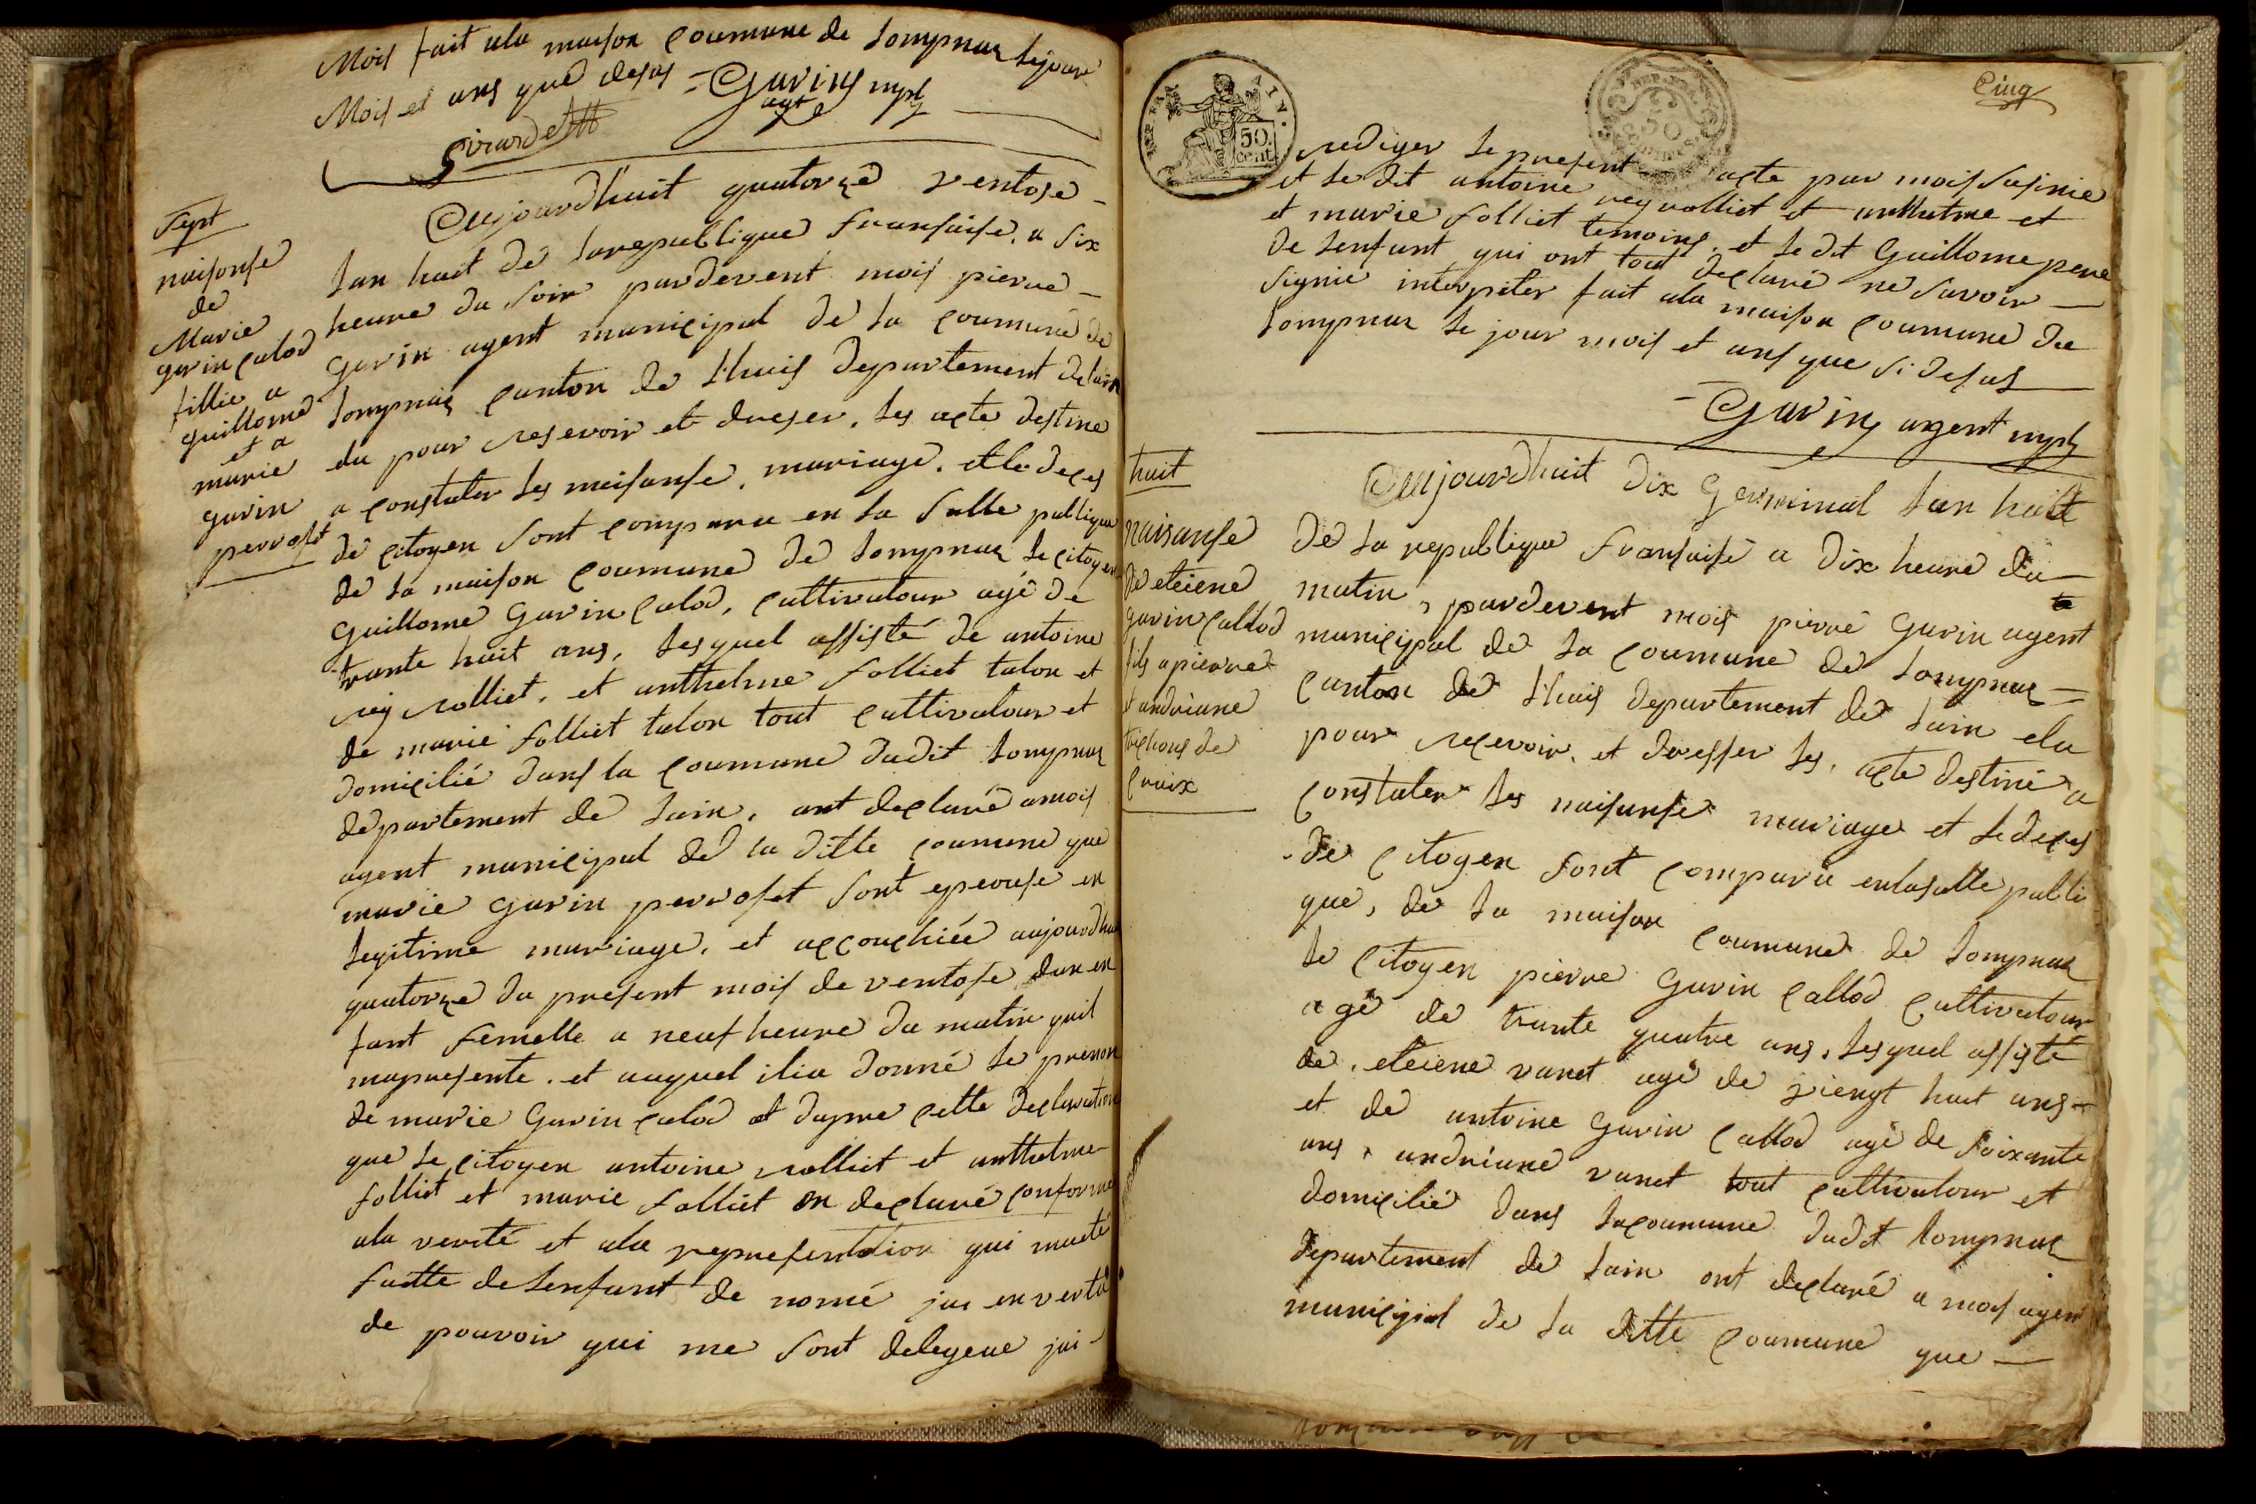 Mois fait ala maison coumune de Lompnaz lejour
Mois et ans que desus = Gavin agt mpl
Girard
Sept
naisanse
de
Marie
gavin calod
fillie a
guillome
et a
marie
gavin
perrosst
Aujourdhuit quatorze ventose
lan huit de larepublique fransaise, a six
heure du soir pardevent mois pierre
gavin agent municipal de la coumune de
Lompnaz canton de Lhuis departement delain
elu pour resevoir et dreser, les acte destine
a constater les naisanse, mariage, et le deces
de citoyen sont comparu en la salle publique
de la maison coumune de Lompnaz le citoyen
guillome Gavin calod, cultivatour agé de
trante huit ans, lesquel assisté de antoine
rey rolliet, et anthelme folliet talon et
de marie folliet talon tout cultivatour et
domicilié dans la coumune dudit Lompnaz
departement de lain, ont declaré amois
agent municipal de la ditte coumune que
marie gavin perroset sont epeouse en
legitime mariage, et accouchiée aujourdhui
quatorze du present mois de ventose dun en
fant femelle a neuf heure du matin quil
mapresente, et auquel ilia donné le prenon
de marie Gavin calod et dapre cette declaration
que le citoyen antoine rolliet et anthelme
folliet et marie folliet on declaré conforme
ala verité et ala representation qui maeté
faitte de lenfant de nomé jai en vertu
de pouvoir qui me sont delegeue jai
cinq
REP. FRA
AIN.
50
cent.
rediger le present acte par mois susinie
et le dit antoine rey rolliet et anthelme et
et marie folliet temoins, et le dit Guillome pere
de lenfant qui ont tout declaré ne savoir
signie interpiter fait ala maison coumune de
Lompnaz le jour mois et ans que si desus
= Gavin agent mpl
huit
naisanse
de eteiene
gavin callod
fils a pierre
et andriane
croix
Aujourdhuit dix Germinal lan huit
de la republique fransaise a dix heure du
matin, pardevent mois pierre Gavin agent
municipal de la coumune de Lompnaz
canton de Lhuis departement de lain elu
pour recevoir, et dresser les, acte destiné a
constater les naisanse mariage et le deces
de citoyen sont comparu enlasalle publi
que, de la maison coumune de Lompnaz
le citoyen pierre Gavin callod cultivatour
agé de trante quatre ans, lesquel assisté
de, eteiene vanet agé de viengt huit ans
et de antoine gavin callod agé de soixante
ans, andriane vanet tout cultivatour et
domicilié dans lacoumune dudit Lompnaz
departement de lain ont declaré a mois agent
municipal de la ditte coumune que